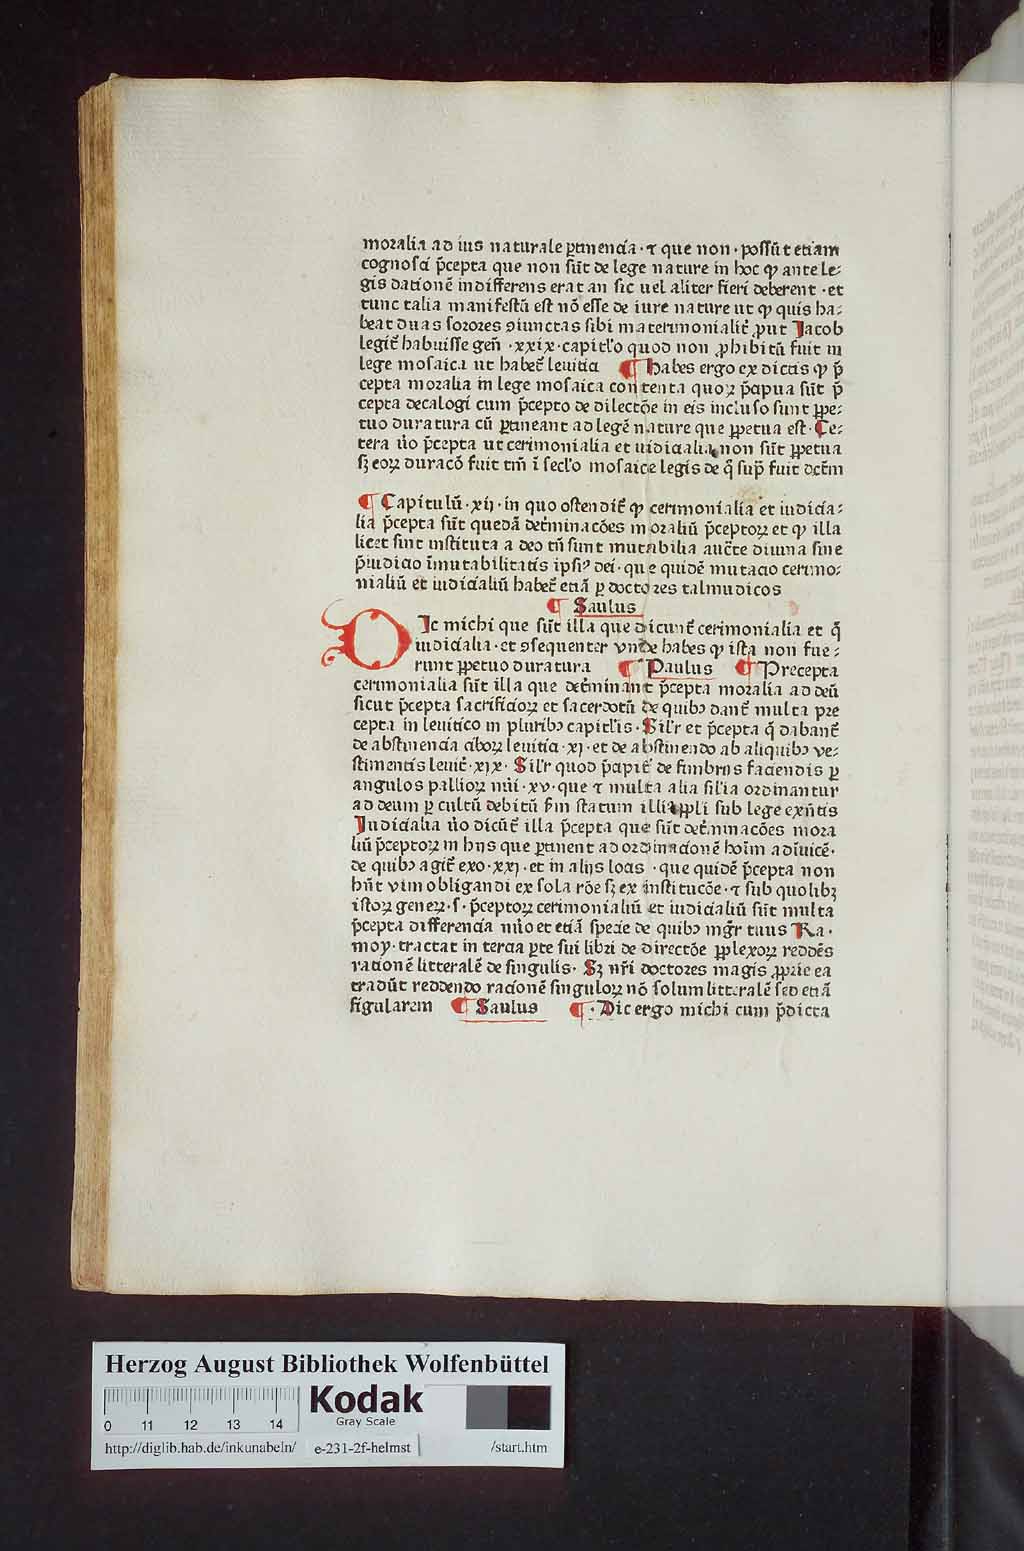 moralia ad ius naturale ꝑtinencia · ⁊ que non · possūt etiam
cognosci p̄cepta que non sūt de lege nature in hoc ꝙ ante le⸗
gis dationē indifferens erat an sic uel aliter fieri deberent · et
tunc talia manifestū est nō esse de iure nature ut ꝙ quis ha⸗
beat duas sorores ꝯiunctas sibi materimonialit᷑ ꝓut Jacob
legit᷑ habuisse gen̄ · xxix · capitl'o quod non ꝓhibitū fuit in
lege mosaica ut habet᷑ leuitici ¶ Habes ergo ex dictis ꝙ p̄
cepta moralia in lege mosaica contenta quoꝝ p̄cipua sūt p̄
cepta decalogi cum p̄cepto de dilectōe in eis incluso sunt ꝑpe⸗
tuo duratura cū ꝑtineant ad legē nature que ꝑpetua est · Ce⸗
tera u̓o p̄cepta ut cerimonialia et iudicialia non sūt ꝑpetua
sꝫ eoꝝ duracō fuit tm̄ ī secl'o mosaice legis de q̄ sup̄ fuit dct̄m
¶ Capitulū · xij · in quo ostendit᷑ ꝙ cerimonialia et iudicia⸗
lia p̄cepta sūt quedā det᷑minacōes moraliū p̄ceptoꝝ et ꝙ illa
licet sint instituta a deo tn̄ sunt mutabilia auct᷑e diuina sine
p̄iudicio īmutabilitatis ipsiꝰ dei · que quidē mutacio cerimo⸗
nialiū et iudicialiū habet᷑ etiā ꝑ doctores talmudicos
¶ Saulus
DIc michi que sūt illa que dicunt᷑ cerimonialia et q̄
iudicialia · et ꝯsequenter vnde habes ꝙ ista non fue⸗
runt ꝑpetuo duratura ¶ Paulus ¶ Precepta
cerimonialia sūt illa que det᷑minant p̄cepta moralia ad deū
sicut p̄cepta sacrificioꝝ et sacerdotū de quibꝰ dant᷑ multa pre
cepta in leuitico in pluribꝰ capitl'is · Sil'r et p̄cepta q̄ dabant᷑
de abstinencia ciboꝝ leuitici · xi · et de abstinendo ab aliquibꝰ ve⸗
stimentis leuit᷑ · xix · Sil'r quod p̄cipit᷑ de fimbrijs faciendis ꝑ
angulos pallioꝝ nūi · xv · que ⁊ multa alia sil'ia ordinantur
ad deum ꝑ cultū debitū s̄m statum illiꝰ ppli sub lege exn̄tis
Judicialia u̓o dicūt᷑ illa p̄cepta que sūt det᷑minacōes mora
liū p̄ceptoꝝ in hijs que ꝑtinent ad ordinacionē hoīm adīuicē ·
de quibꝰ agit᷑ exo · xxi · et in alijs locis · que quidē p̄cepta non
hn̄t vim obligandi ex sola rōe sꝫ ex institucōe · ⁊ sub quolibꝫ
istoꝝ geneꝝ · s · p̄ceptoꝝ cerimonialiū et iudicialiū sūt multa
p̄cepta differencia nu̓o et etiā specie de quibꝰ mgr̄ tuus Ra ·
moy · tractat in tercia ꝑte sui libri de directōe ꝑplexoꝝ reddēs
rationē litteralē de singulis · Sꝫ nr̄i doctores magis ꝓprie ea
tradūt reddendo racionē singuloꝝ nō solum litteralē sed etiā
figularem ¶ Saulus ¶ · Dic ergo michi cum p̄dicta
Herzog August Bibliothek Wolfenbüttel
0 11 12 13 14
Kodak
Gray Scale
http://diglib.hab.de/inkunabeln/ e-231-2f-helmst /start.htm